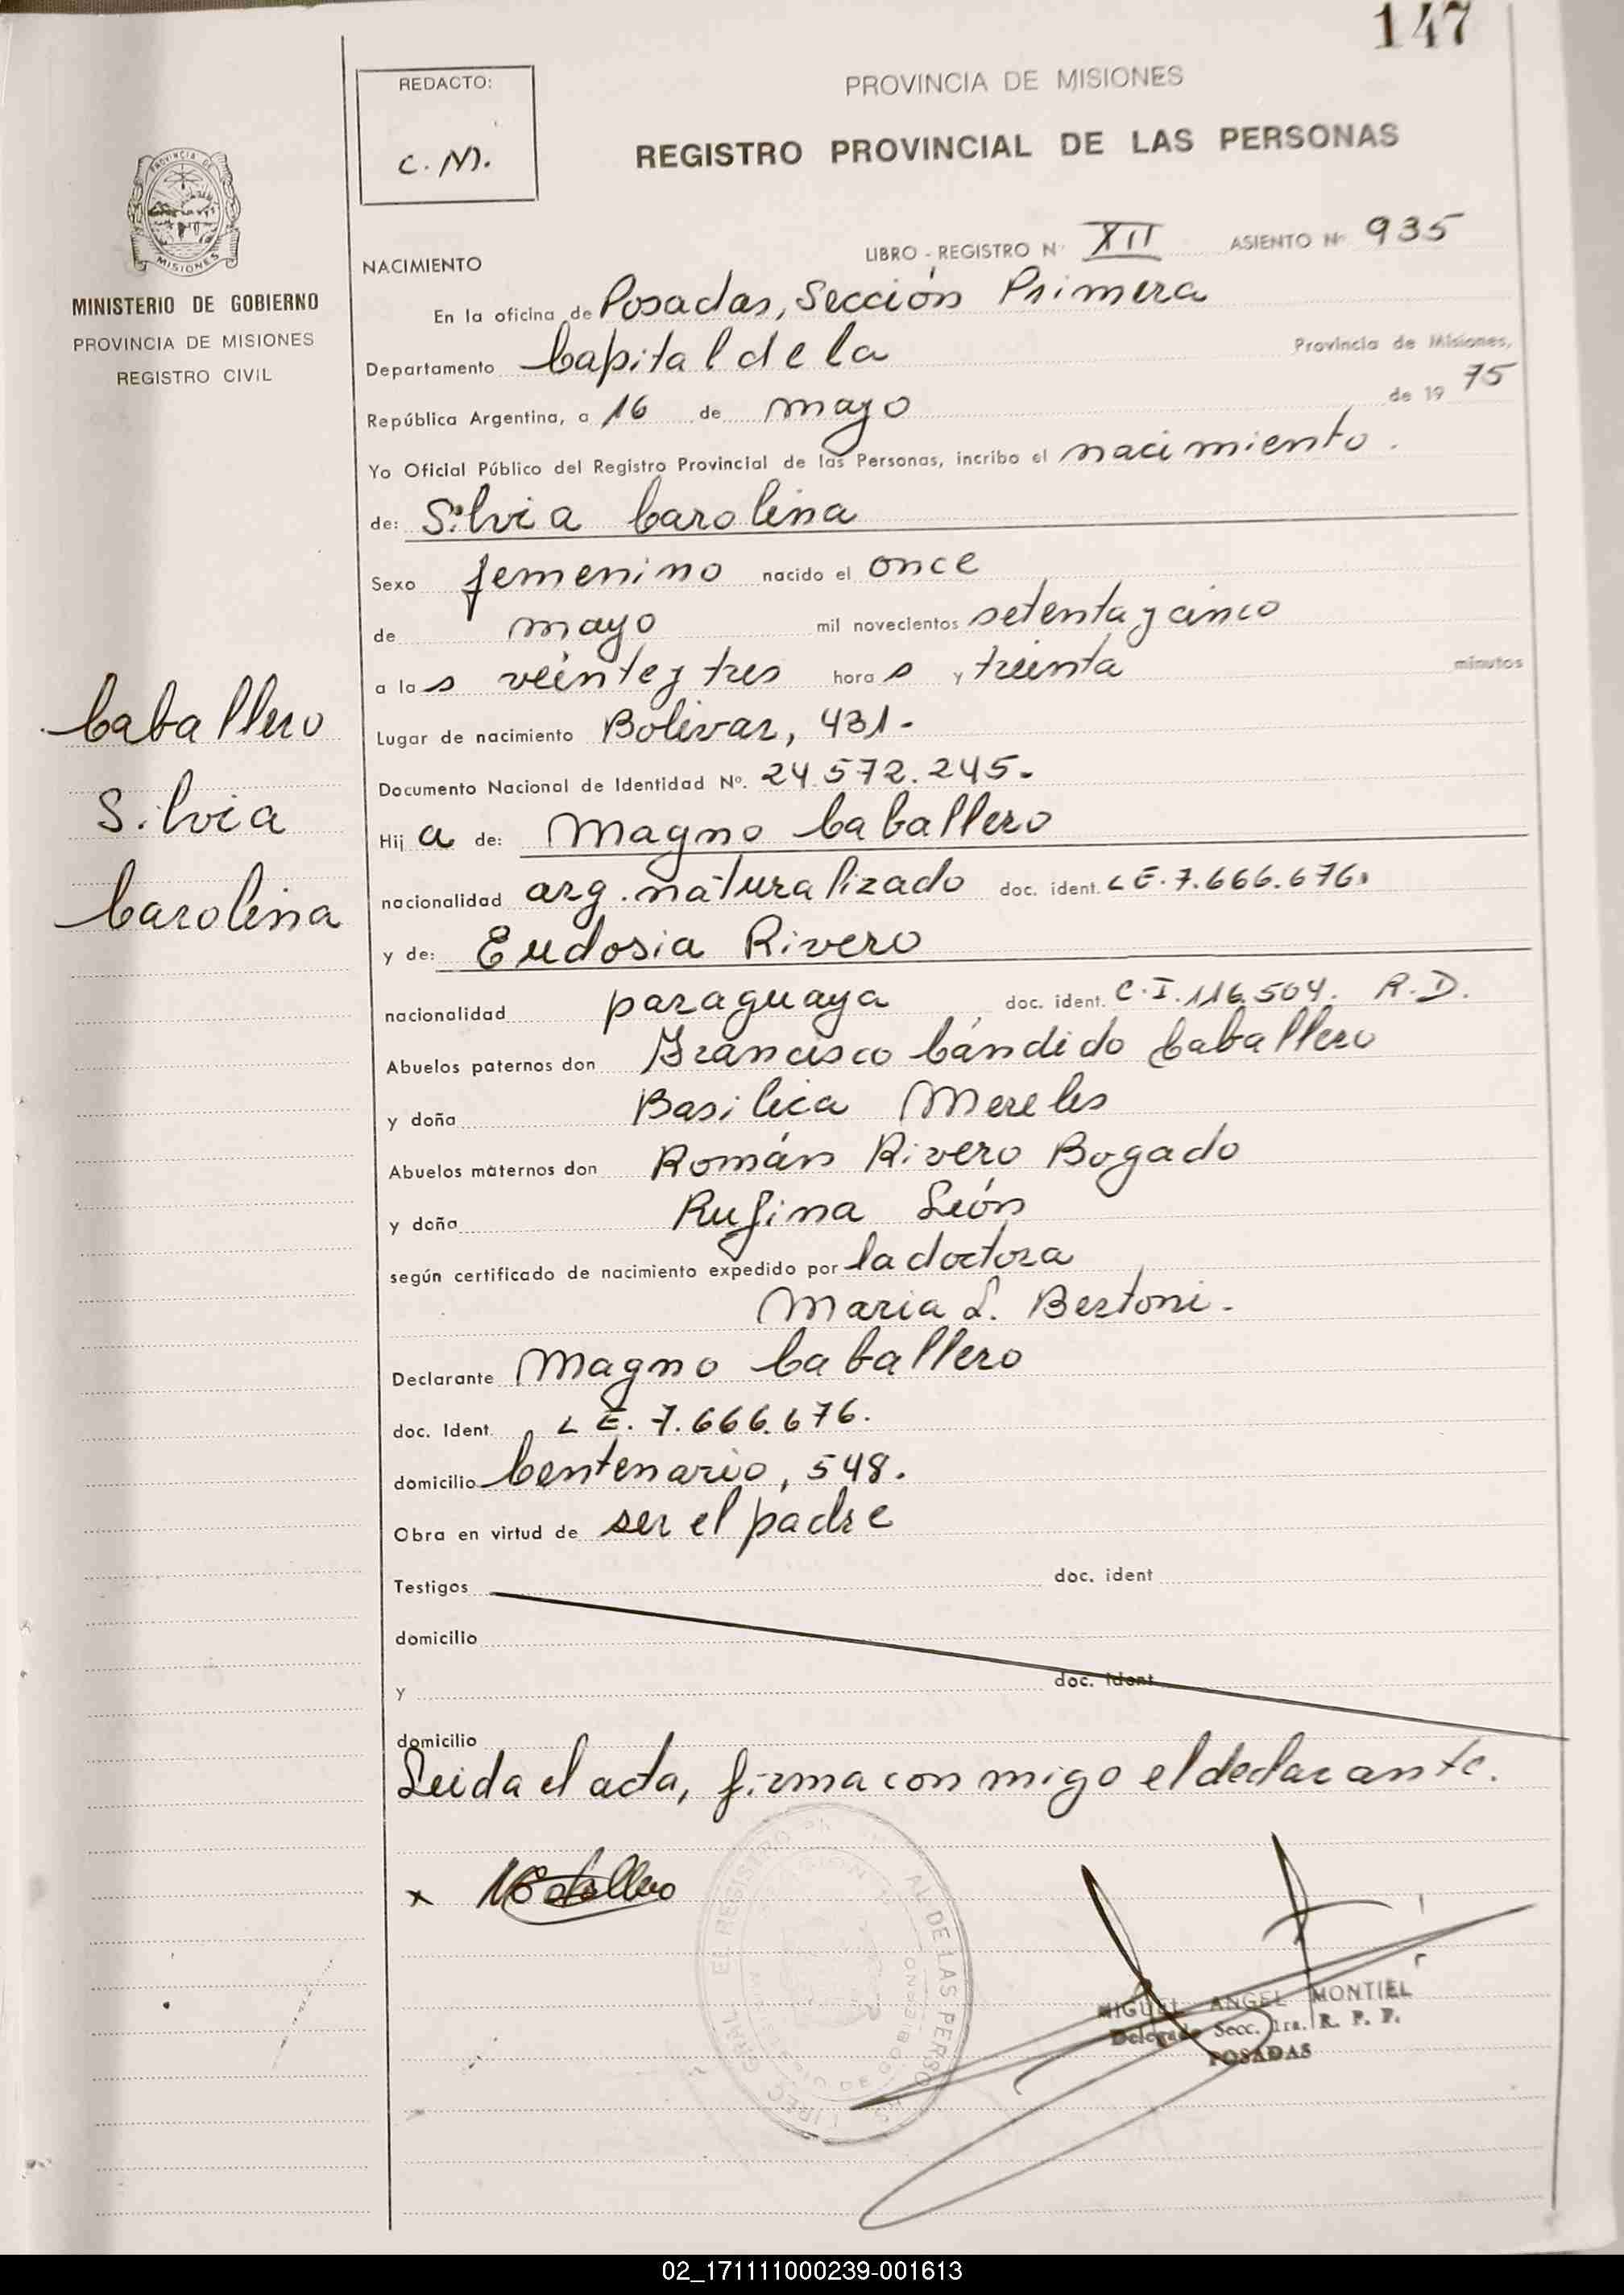 147
REDACTO:
C. M.
PROVINCIA DE MISIONES
REGISTRO PROVINCIAL DE LAS PERSONAS
PROVINCIA DE
MISIONES
MINISTERIO DE GOBIERNO
PROVINCIA DE MISIONES
REGISTRO CIVIL
LIBRO - REGISTRO Nº XII ASIENTO Nº 935
NACIMIENTO
En la oficina de Posadas, Sección Primera
Departamento Capital de la Provincia de Misiones,
República Argentina, a 16 de mayo de 19 75
Yo Oficial Público del Registro Provincial de las Personas, incribo el nacimiento.
de: Silvia Carolina
Sexo femenino nacido el once
de mayo mil novecientos setenta y cinco
a las veinte y tres horas y treinta minutos
Lugar de nacimiento Bolivar, 431.-
Documento Nacional de Identidad Nº. 24.572.245.
Hija de: Magno Caballero
nacionalidad arg. naturalizado doc. ident. L E. 7.666.676.
y de: Eudosia Rivero
nacionalidad paraguaya doc. ident. C. I. 116.504. R. D.
Abuelos paternos don Francisco Cándido Caballero
y doña Basilica Mereles
Abuelos maternos don Román Rivero Bogado
y doña Rufina León
según certificado de nacimiento expedido por la doctora
Maria L. Bertoni.-
Declarante Magno Caballero
doc. Ident. L E. 7.666.676.
domicilio Centenario, 548.
Obra en virtud de ser el padre
Testigos doc. ident
domicilio
y doc. ident
domicilio
Leida el acta, firma conmigo el declarante.
Caballero
Silvia
Carolina
x
MIGUEL ANGEL MONTIEL
Delegado Secc. 1ra. R. P. P.
POSADAS
02_171111000239-001613